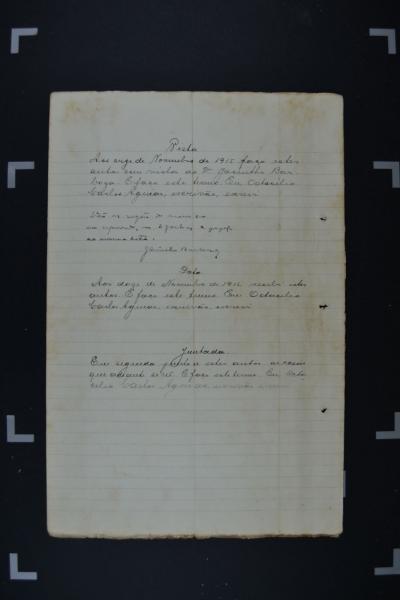 Vista
Aos onze de Novembro de 1915 faço estes
autos com vista ao Dr. Jacintho Bar-
boza. E faço este termo. Eu, Octacilio
Carlos Aguiar, escrivão, escrevi
Vão as razões
em separado,
Data
Aos doze de Novembro de 1915 recebi estes
autos. E faço este termo. Eu Octacilio
Carlos Aguiar, escrivão, escrevi
Juntada
Em seguida junto a estes autos as razões
que adiante se vê. E faço este termo. Eu, Octa
cilio Carlos Aguiar, escrivão escrevi